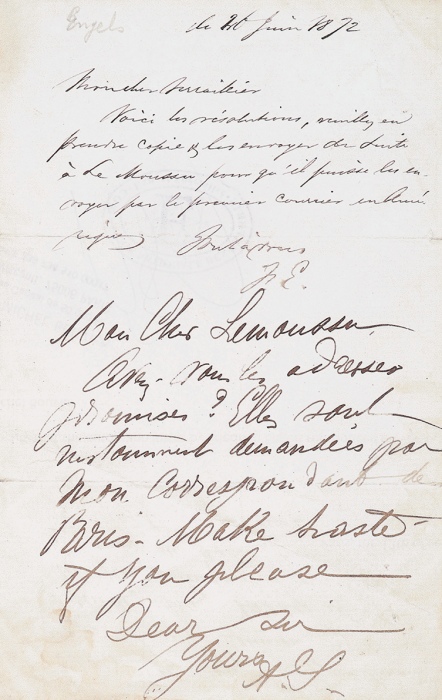 Engels
le 21 Juin 1872
Mon cher Serraillier
Voici les résolutions, veuillez en
prendre copie & les envoyer de suite
à Le Moussu pour qu'il puisse les en-
voyer par le premier courrier en Amé
rique
Tout à vous
F. E.
Mon Cher Lemoussu
Avez-vous les adresses
promises? Elles sont
instamment demandées par
mon correspondant de
Paris - Make haste
if you please
Dear sir
Yours A S